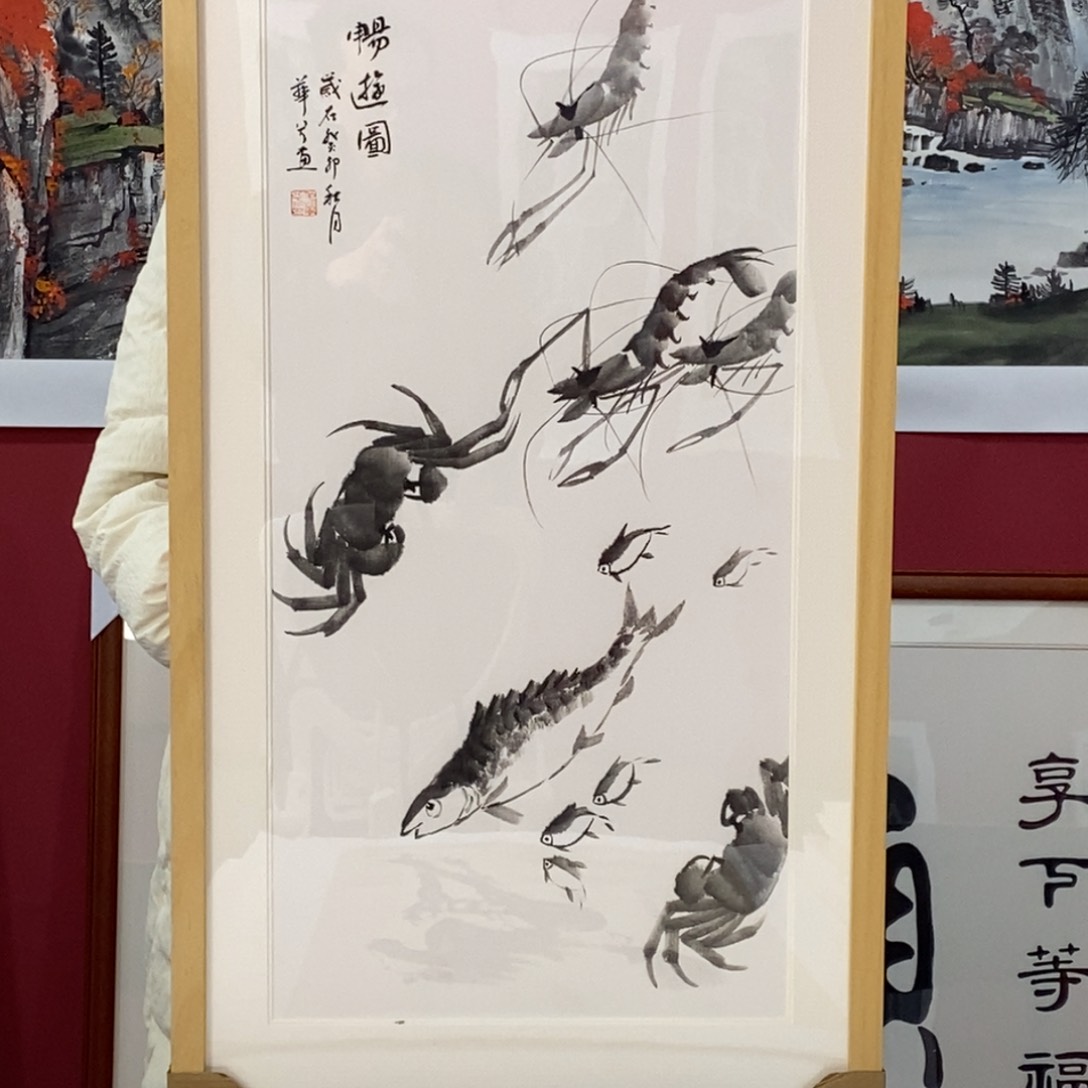 暢遊圖
歲在癸卯秋月
華
享下等福